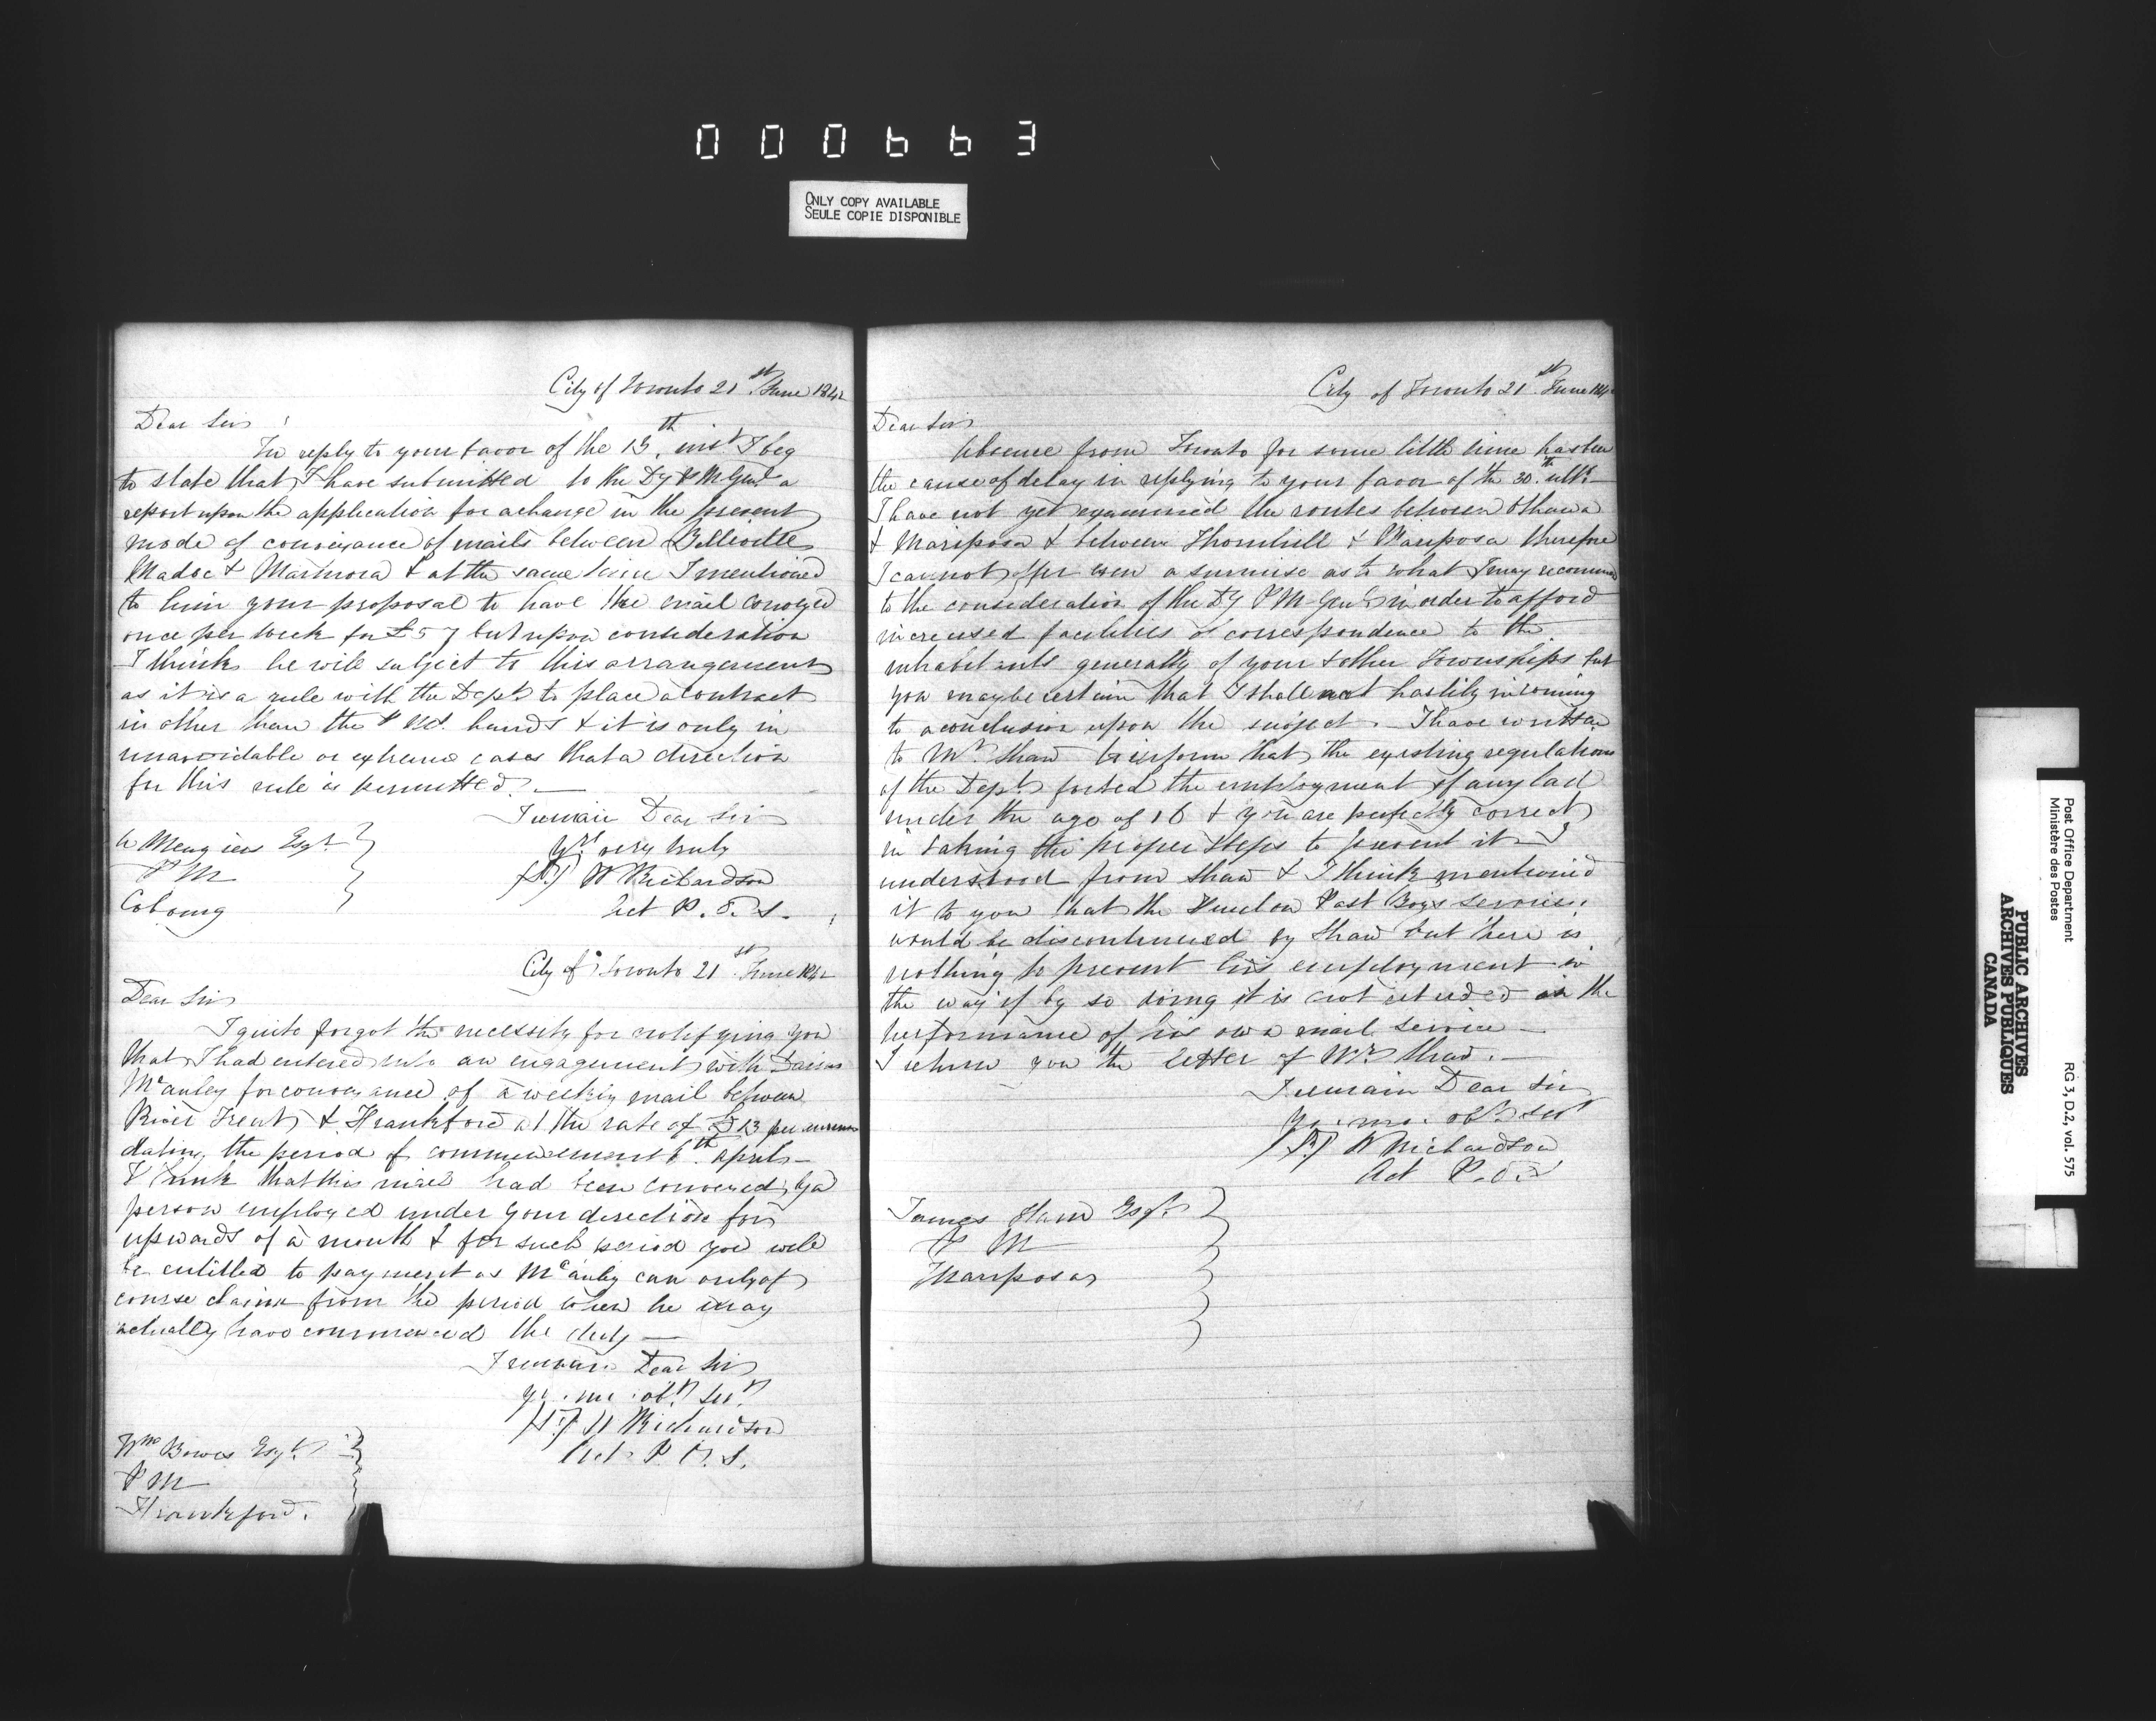 000663
ONLY COPY AVAILABLE
SEULE COPIE DISPONIBLE
City of Toronto 21st June 1842
Dear Sir
In reply to your favor of the 13th inst I beg
to state that I have submitted to the Dy P M Genl a
report upon the application for a change in the present
mode of conveyance of mails between Belleville
Madoc & Marmora & at the same time I mentioned
to him your proposal to have the mail conveyed
once per week for £57 but upon consideration
I think he will subject to this arrangement
as it is a rule with the Dept to place a contract
in other than the hands & it is only in
unavoidable or extreme cases that a direction
for this rule is permitted. —
I remain Dear Sir
Yrs very truly
W Richardson
Act P. O. S.
Esqr
P M
Cobourg
City of Toronto 21st June 1842
Dear Sir
I quite forgot the necessity for notifying you
that I had entered into an engagement with
McAuley for conveyance of a weekly mail between
River Trent & Frankford at the rate of £13 per annum
dating the period of commencement 6th April —
I think that this mail had been conveyed by a
person employed under your direction for
upwards of a month & for such period you will
be entitled to payment as McAuley can only of
course claim from the period when he may
actually have commenced the duty —
I remain Dear Sir
yr. mo. obt. Sert.
W Richardson
Act P. O. S.
Wm Bowes Esqr.
P M
Frankford.
City of Toronto 21st June 184
Dear Sir
Absence from Toronto for some little time has been
the cause of delay in replying to your favor of the 30th ulto.
I have not yet examined the routes between Oshawa
& Mariposa & between Thornhill & Mariposa therefore
I cannot offer even a surmise as to what I may recommend
to the consideration of the Dy P M Genl in order to afford
increased facilities of correspondence to the
inhabitants generally of your & other Townships but
you may be certain that I shall not hastily in coming
to a conclusion upon the subject. I have written
to Mr. Shaw to inform that the existing regulations
of the Dept forbid the employment of any lad
under the age of 16 & you are perfectly correct
in taking the proper steps to prevent it — I
understood from Shaw & I think mentioned
it to you that the Post Boy's services
would be discontinued by Shaw but there is
nothing to prevent his employment in
the way if by so doing it is not in the
performance of his own mail service —
I return you the letter of Mr Shaw. —
I remain Dear Sir
Yr. mo. obt Sert
W Richardson
Act P. O. S
James Esqr.
P M
Mariposa
Post Office Department
Ministère des Postes
RG 3, D.2, vol. 575
PUBLIC ARCHIVES
ARCHIVES PUBLIQUES
CANADA